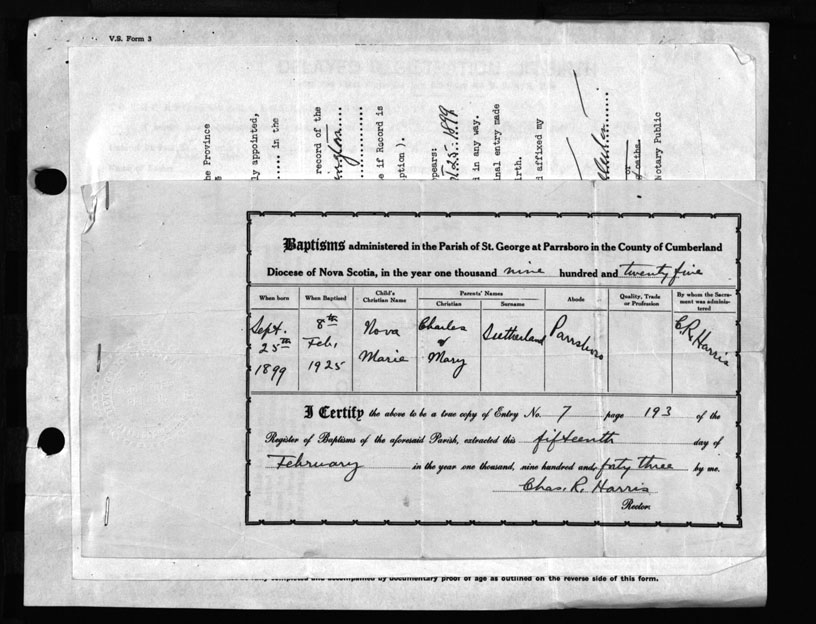 V.S. Form 3
he Province
ly appointed,
........ in the
record of the
..............
e if Record is
ption ).
ppears:
25...1899
d in any way.
nal entry made
irth.
d affixed my
or
oaths.
Notary Public
Baptisms administered in the Parish of St. George at Parrsboro in the County of Cumberland
Diocese of Nova Scotia, in the year one thousand nine hundred and twenty five
When born When Baptised Child's Christian Name Parents' Names Christian Surname Abode Quality, Trade or Profession By whom the Sacrament was administered
Sept. 25th 1899 8th Feb, 1925 Nova Marie Charles & Mary Sutherland Parrsboro C.R. Harris
I Certify the above to be a true copy of Entry No. 7 page 193 of the
Register of Baptisms of the aforesaid Parish, extracted this fifteenth day of
February in the year one thousand, nine hundred and forty three by me.
Chas. R. Harris
Rector.
completed and accompanied by documentary proof of age as outlined on the reverse side of this form.